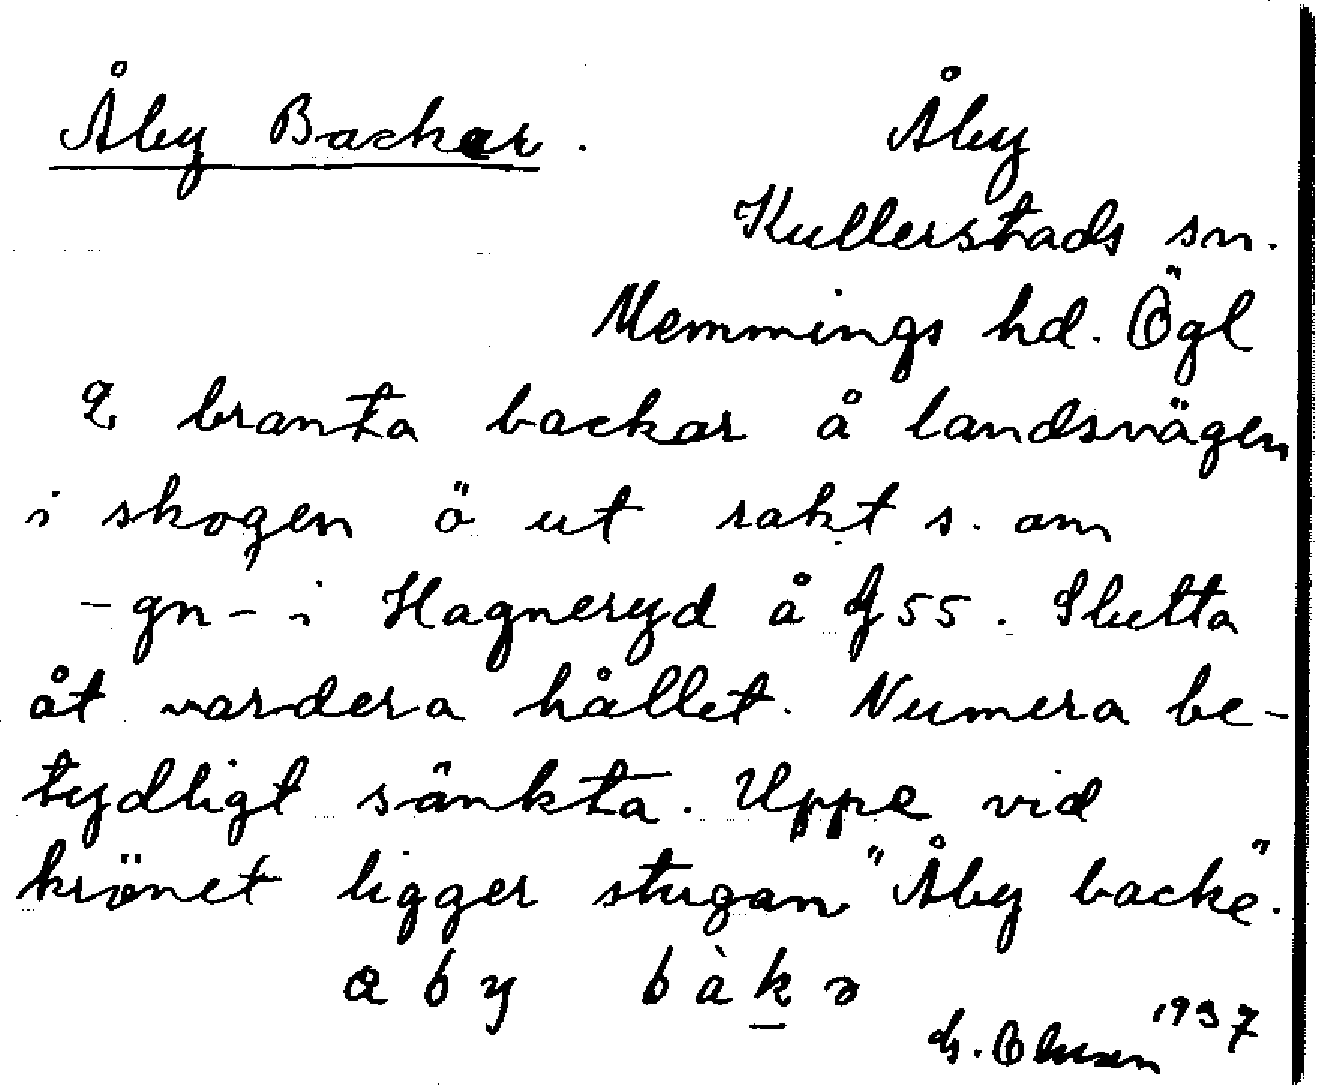 Åby Backar. Åby
Kullerstads sn.
Memmings hd. Ögl
2 branta backar å landsvägen
i skogen ö ut rakt s. om
-gn- i Hagneryd å f 55. Slutta
åt vardera hållet. Numera be-
tydligt sänkta. Uppe vid
krönet ligger stugan "Åby backe".
åby bàkə
1937